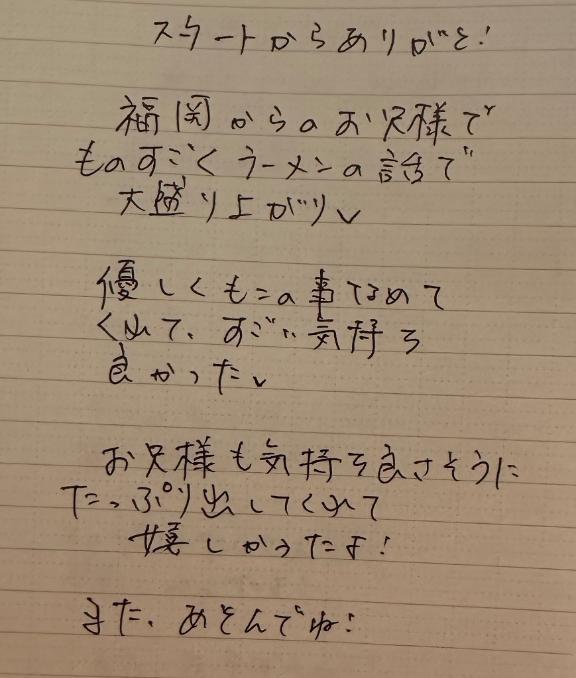 スタートからありがと!
福岡からのお兄様で
ものすごくラーメンの話で
大盛り上がり✓
優しくもこの事なめて
くれて、すごい気持ち
良かった✓
お兄様も気持ち良さそうに
たっぷり出してくれて
嬉しかったよ!
また、あそんでね!